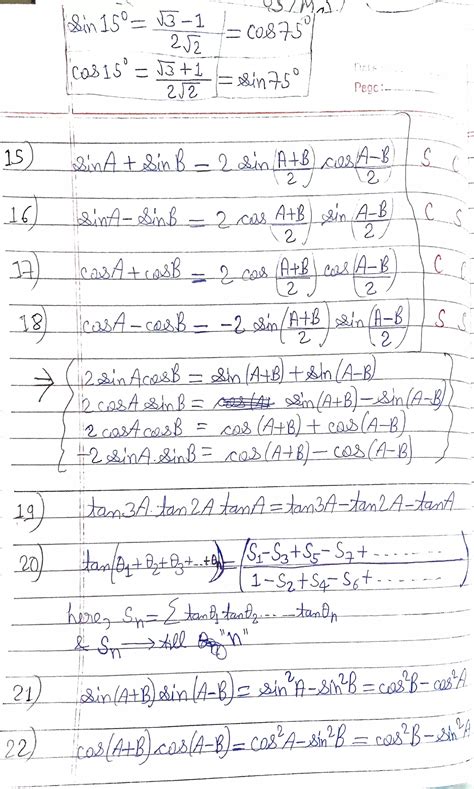 sin15° = (√3-1)/(2√2) = cos75°
cos15° = (√3+1)/(2√2) = sin75°
Page:
15) sinA + sinB = 2 sin(A+B/2) cos(A-B/2) S C
16) sinA - sinB = 2 cos(A+B/2) sin(A-B/2) C S
17) cosA + cosB = 2 cos(A+B/2) cos(A-B/2) C C
18) cosA - cosB = -2 sin(A+B/2) sin(A-B/2) S S
→ 2 sinA cosB = sin(A+B) + sin(A-B)
2 cosA sinB = sin(A+B) - sin(A-B)
2 cosA cosB = cos(A+B) + cos(A-B)
-2 sinA·sinB = cos(A+B) - cos(A-B)
19) tan3A·tan2A tanA = tan3A - tan2A - tanA
20) tan(θ₁+θ₂+θ₃+...+θₙ) = (S₁-S₃+S₅-S₇+........)/(1-S₂+S₄-S₆+.......)
here, Sₙ = Σ tanθ₁ tanθ₂ ...... tanθₙ
& Sₙ → till "n"
21) sin(A+B) sin(A-B) = sin²A - sin²B = cos²B - cos²A
22) cos(A+B) cos(A-B) = cos²A - sin²B = cos²B - sin²A